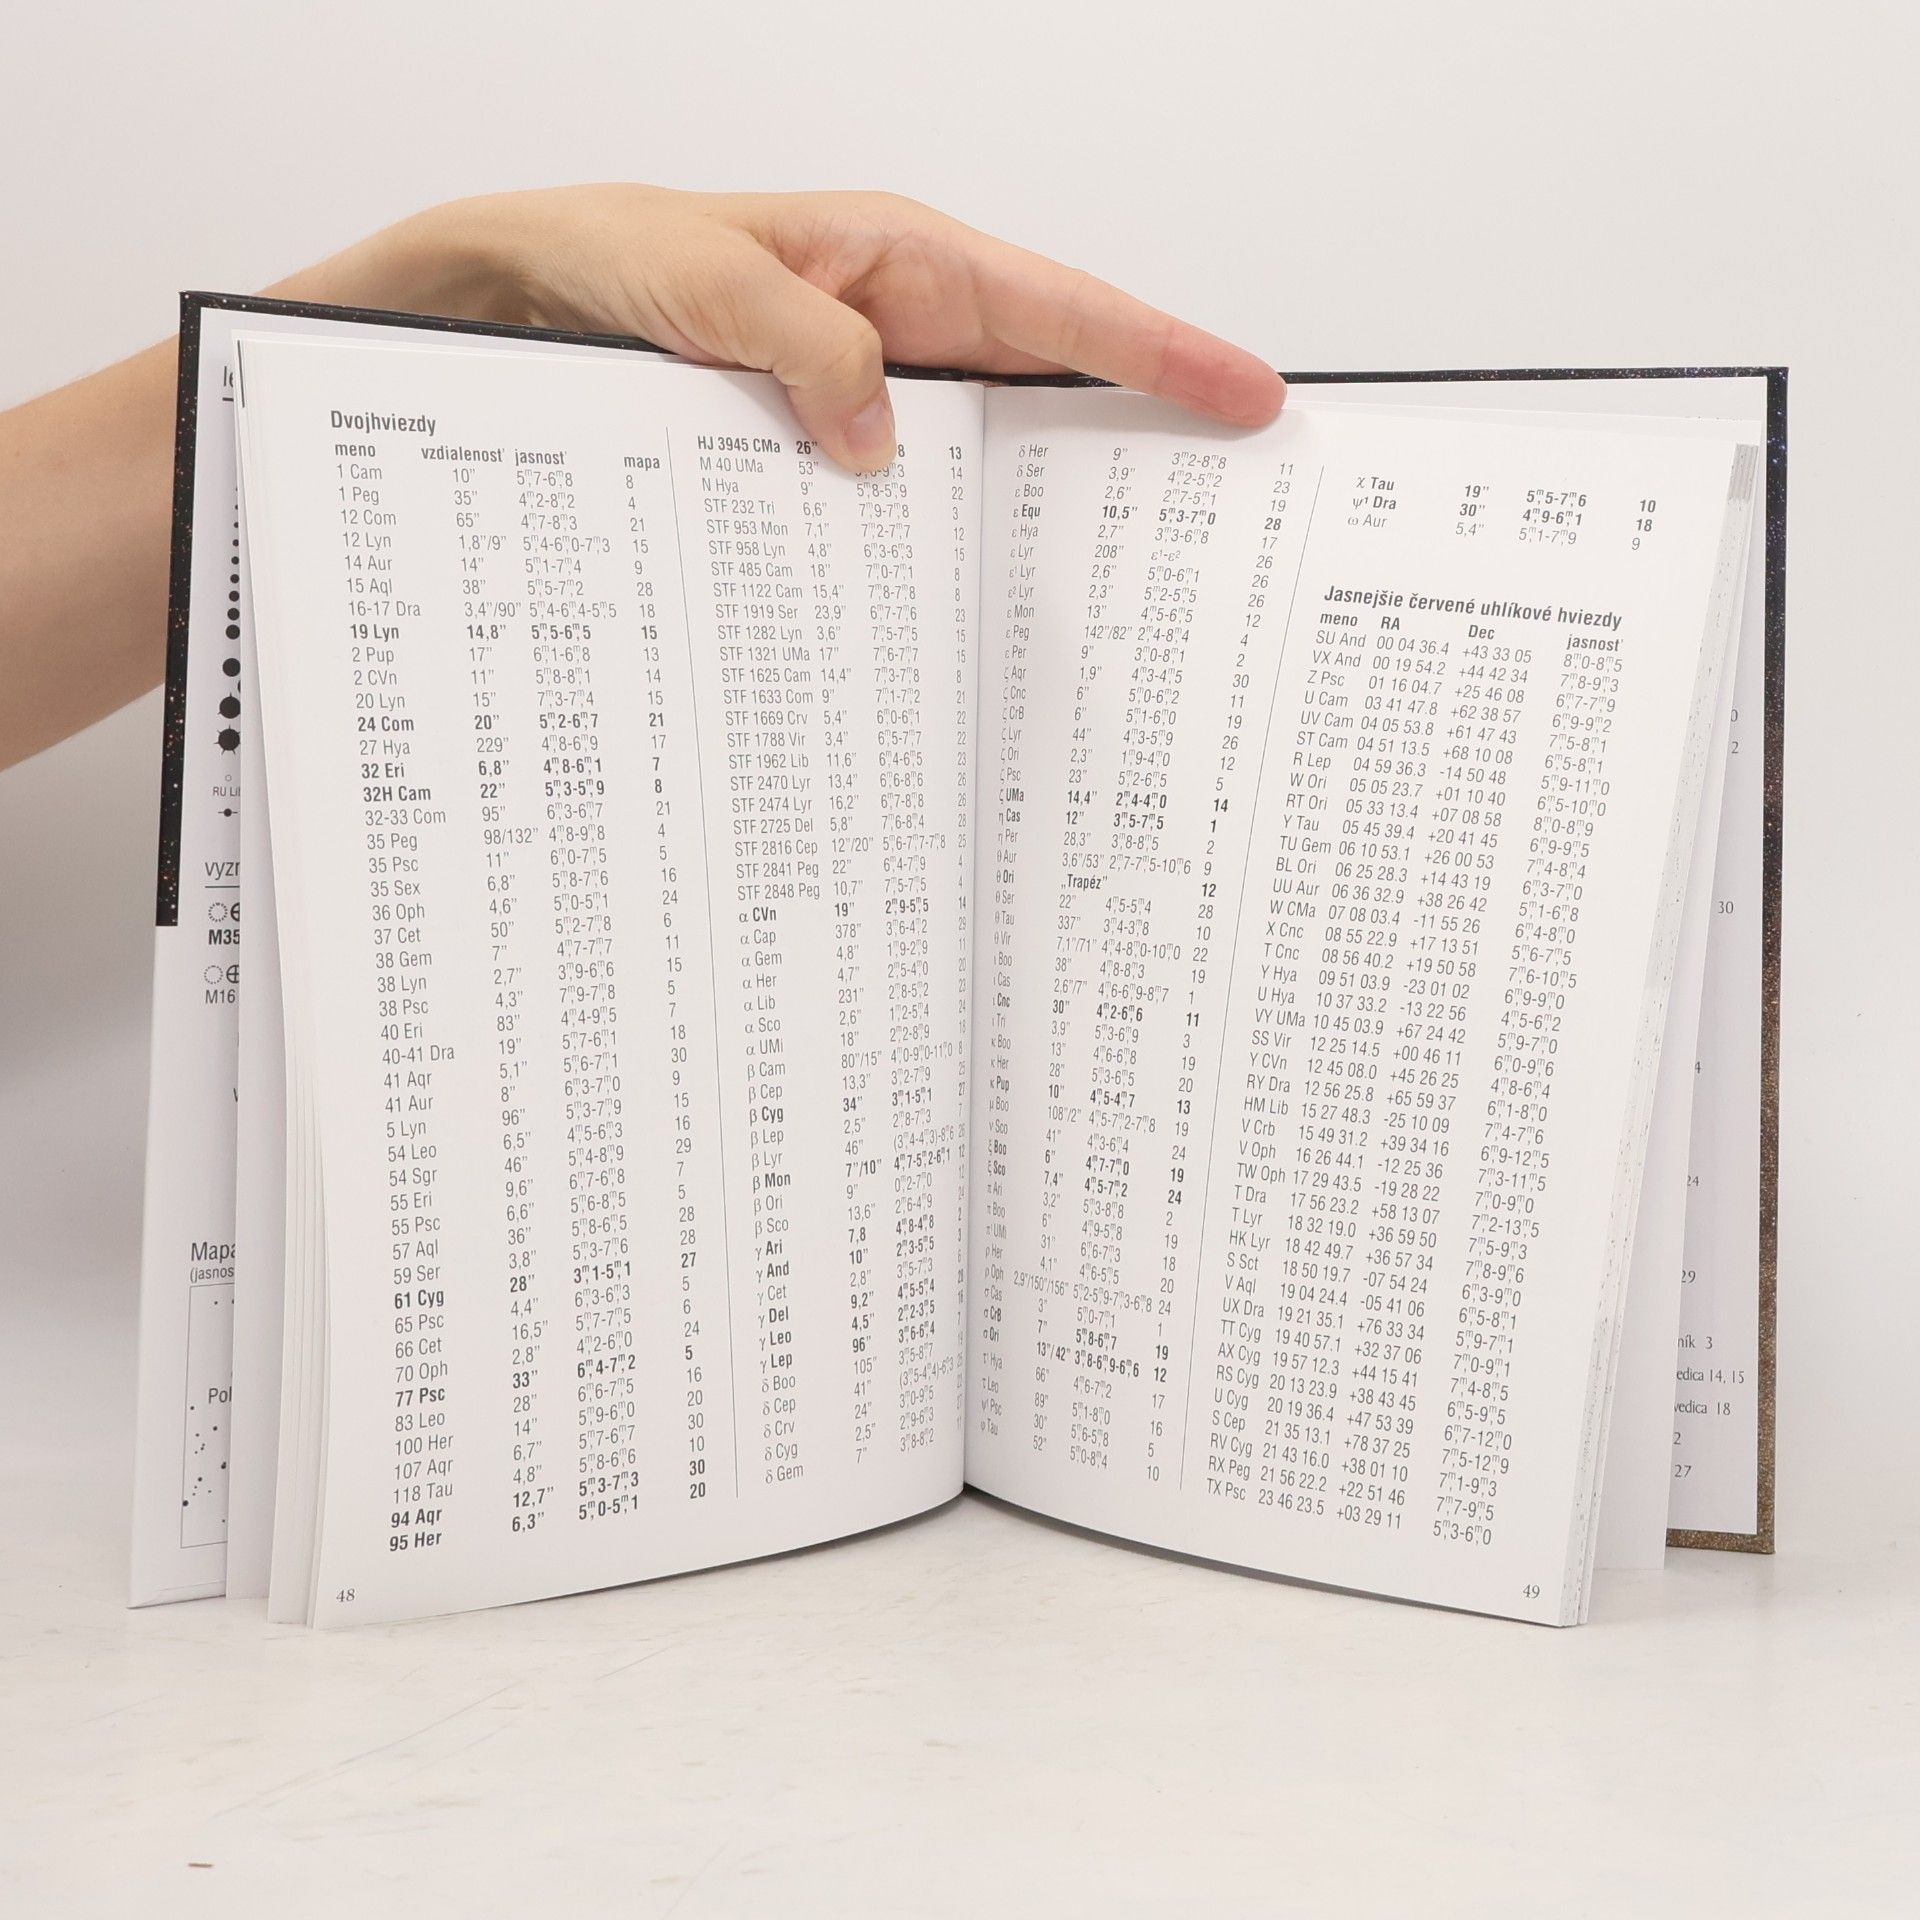 Dvojhviezdy
meno vzdialenosť jasnosť mapa
1 Cam 10” 5ᵐ,7-6ᵐ,8 8
1 Peg 35” 4ᵐ,2-8ᵐ,2 4
12 Com 65” 4ᵐ,7-8ᵐ,3 21
12 Lyn 1,8”/9” 5ᵐ,4-6ᵐ,0-7ᵐ,3 15
14 Aur 14” 5ᵐ,1-7ᵐ,4 9
15 Aql 38” 5ᵐ,5-7ᵐ,2 28
16-17 Dra 3,4”/90” 5ᵐ,4-6ᵐ,4-5ᵐ,5 18
19 Lyn 14,8” 5ᵐ,5-6ᵐ,5 15
2 Pup 17” 6ᵐ,1-6ᵐ,8 13
2 CVn 11” 5ᵐ,8-8ᵐ,1 14
20 Lyn 15” 7ᵐ,3-7ᵐ,4 15
24 Com 20” 5ᵐ,2-6ᵐ,7 21
27 Hya 229” 4ᵐ,8-6ᵐ,9 17
32 Eri 6,8” 4ᵐ,8-6ᵐ,1 7
32H Cam 22” 5ᵐ,3-5ᵐ,9 8
32-33 Com 95” 6ᵐ,3-6ᵐ,7 21
35 Peg 98/132” 4ᵐ,8-9ᵐ,8 4
35 Psc 11” 6ᵐ,0-7ᵐ,5 5
35 Sex 6,8” 5ᵐ,8-7ᵐ,6 16
36 Oph 4,6” 5ᵐ,0-5ᵐ,1 24
37 Cet 50” 5ᵐ,2-7ᵐ,8 6
38 Gem 7” 4ᵐ,7-7ᵐ,7 11
38 Lyn 2,7” 3ᵐ,9-6ᵐ,6 15
38 Psc 4,3” 7ᵐ,9-7ᵐ,8 5
40 Eri 83” 4ᵐ,4-9ᵐ,5 7
40-41 Dra 19” 5ᵐ,7-6ᵐ,1 18
41 Aqr 5,1” 5ᵐ,6-7ᵐ,1 30
41 Aur 8” 6ᵐ,3-7ᵐ,0 9
5 Lyn 96” 5ᵐ,3-7ᵐ,9 15
54 Leo 6,5” 4ᵐ,5-6ᵐ,3 16
54 Sgr 46” 5ᵐ,4-8ᵐ,9 29
55 Eri 9,6” 6ᵐ,7-6ᵐ,8 7
55 Psc 6,6” 5ᵐ,6-8ᵐ,5 5
57 Aql 36” 5ᵐ,8-6ᵐ,5 28
59 Ser 3,8” 5ᵐ,3-7ᵐ,6 28
61 Cyg 28” 3ᵐ,1-5ᵐ,1 27
65 Psc 4,4” 6ᵐ,3-6ᵐ,3 5
66 Cet 16,5” 5ᵐ,7-7ᵐ,5 6
70 Oph 2,8” 4ᵐ,2-6ᵐ,0 24
77 Psc 33” 6ᵐ,4-7ᵐ,2 5
83 Leo 28” 6ᵐ,6-7ᵐ,5 16
100 Her 14” 5ᵐ,9-6ᵐ,0 20
107 Aqr 6,7” 5ᵐ,7-6ᵐ,7 30
118 Tau 4,8” 5ᵐ,8-6ᵐ,6 10
94 Aqr 12,7” 5ᵐ,3-7ᵐ,3 30
95 Her 6,3” 5ᵐ,0-5ᵐ,1 20
HJ 3945 CMa 26” 8 13
M 40 UMa 53” 14
N Hya 9” 5ᵐ,8-5ᵐ,9 22
STF 232 Tri 6,6” 7ᵐ,9-7ᵐ,8 3
STF 953 Mon 7,1” 7ᵐ,2-7ᵐ,7 12
STF 958 Lyn 4,8” 6ᵐ,3-6ᵐ,3 15
STF 485 Cam 18” 7ᵐ,0-7ᵐ,1 8
STF 1122 Cam 15,4” 7ᵐ,8-7ᵐ,8 8
STF 1919 Ser 23,9” 6ᵐ,7-7ᵐ,6 23
STF 1282 Lyn 3,6” 7ᵐ,5-7ᵐ,5 15
STF 1321 UMa 17” 7ᵐ,6-7ᵐ,7 15
STF 1625 Cam 14,4” 7ᵐ,3-7ᵐ,8 8
STF 1633 Com 9” 7ᵐ,1-7ᵐ,2 21
STF 1669 Crv 5,4” 6ᵐ,0-6ᵐ,1 22
STF 1788 Vir 3,4” 6ᵐ,5-7ᵐ,7 22
STF 1962 Lib 11,6” 6ᵐ,4-6ᵐ,5 23
STF 2470 Lyr 13,4” 6ᵐ,6-8ᵐ,6 26
STF 2474 Lyr 16,2” 6ᵐ,7-8ᵐ,8 26
STF 2725 Del 5,8” 7ᵐ,6-8ᵐ,4 28
STF 2816 Cep 12”/20” 5ᵐ,6-7ᵐ,7-7ᵐ,8 25
STF 2841 Peg 22” 6ᵐ,4-7ᵐ,9 4
STF 2848 Peg 10,7” 7ᵐ,5-7ᵐ,5 4
α CVn 19” 2ᵐ,9-5ᵐ,5 14
α Cap 378” 3ᵐ,6-4ᵐ,2 29
α Gem 4,8” 1ᵐ,9-2ᵐ,9 11
α Her 4,7” 2ᵐ,5-4ᵐ,0 20
α Lib 231” 2ᵐ,8-5ᵐ,2 23
α Sco 2,6” 1ᵐ,2-5ᵐ,4 24
α UMi 18” 2ᵐ,2-8ᵐ,9 18
β Cam 80”/15” 4ᵐ,0-9ᵐ,0-11ᵐ,0 8
β Cep 13,3” 3ᵐ,2-7ᵐ,9 25
β Cyg 34” 3ᵐ,1-5ᵐ,1 27
β Lep 2,5” 2ᵐ,8-7ᵐ,3 7
β Lyr 46” (3ᵐ,4-4ᵐ,3)-8ᵐ,6 26
β Mon 7”/10” 4ᵐ,7-5ᵐ,2-6ᵐ,1 12
β Ori 9” 0ᵐ,2-7ᵐ,0 12
β Sco 13,6” 2ᵐ,6-4ᵐ,9 24
γ Ari 7,8 4ᵐ,8-4ᵐ,8 2
γ And 10” 2ᵐ,3-5ᵐ,5 3
γ Cet 2,8” 3ᵐ,5-7ᵐ,3 6
γ Del 9,2” 4ᵐ,5-5ᵐ,4 28
γ Leo 4,5” 2ᵐ,2-3ᵐ,5 16
γ Lep 96” 3ᵐ,6-6ᵐ,4 7
δ Boo 105” 3ᵐ,5-8ᵐ,7 19
δ Cep 41” (3ᵐ,5-4ᵐ,4)-6ᵐ,3 25
δ Crv 24” 3ᵐ,0-9ᵐ,5 22
δ Cyg 2,5” 2ᵐ,9-6ᵐ,3 27
δ Gem 7” 3ᵐ,8-8ᵐ,2 11
48
δ Her 9” 3ᵐ,2-8ᵐ,8 11
δ Ser 3,9” 4ᵐ,2-5ᵐ,2 23
ε Boo 2,6” 2ᵐ,7-5ᵐ,1 19
ε Equ 10,5” 5ᵐ,3-7ᵐ,0 28
ε Hya 2,7” 3ᵐ,3-6ᵐ,8 17
ε Lyr 208” ε¹-ε² 26
ε¹ Lyr 2,6” 5ᵐ,0-6ᵐ,1 26
ε² Lyr 2,3” 5ᵐ,2-5ᵐ,5 26
ε Mon 13” 4ᵐ,5-6ᵐ,5 12
ε Peg 142”/82” 2ᵐ,4-8ᵐ,4 4
ε Per 9” 3ᵐ,0-8ᵐ,1 2
ζ Aqr 1,9” 4ᵐ,3-4ᵐ,5 30
ζ Cnc 6” 5ᵐ,0-6ᵐ,2 11
ζ CrB 6” 5ᵐ,1-6ᵐ,0 19
ζ Lyr 44” 4ᵐ,3-5ᵐ,9 26
ζ Ori 2,3” 1ᵐ,9-4ᵐ,0 12
ζ Psc 23” 5ᵐ,2-6ᵐ,5 5
ζ UMa 14,4” 2ᵐ,4-4ᵐ,0 14
η Cas 12” 3ᵐ,5-7ᵐ,5 1
η Per 28,3” 3ᵐ,8-8ᵐ,5 2
θ Aur 3,6”/53” 2ᵐ,7-7ᵐ,5-10ᵐ,6 9
θ Ori „Trapéz” 12
θ Ser 22” 4ᵐ,5-5ᵐ,4 28
θ Tau 337” 3ᵐ,4-3ᵐ,8 10
θ Vir 7,1”/71” 4ᵐ,4-8ᵐ,0-10ᵐ,0 22
ι Boo 38” 4ᵐ,8-8ᵐ,3 19
ι Cas 2,6”/7” 4ᵐ,6-6ᵐ,9-8ᵐ,7 1
ι Cnc 30” 4ᵐ,2-6ᵐ,6 11
ι Tri 3,9” 5ᵐ,3-6ᵐ,9 3
κ Boo 13” 4ᵐ,6-6ᵐ,8 19
κ Her 28” 5ᵐ,3-6ᵐ,5 20
κ Pup 10” 4ᵐ,5-4ᵐ,7 13
μ Boo 108”/2” 4ᵐ,5-7ᵐ,2-7ᵐ,8 19
ν Sco 41” 4ᵐ,3-6ᵐ,4 24
ξ Boo 6” 4ᵐ,7-7ᵐ,0 19
ξ Sco 7,4” 4ᵐ,5-7ᵐ,2 24
π Ari 3,2” 5ᵐ,3-8ᵐ,8 2
π Boo 6” 4ᵐ,9-5ᵐ,8 19
π¹ UMi 31” 6ᵐ,6-7ᵐ,3 18
ρ Her 4,1” 4ᵐ,6-5ᵐ,5 20
ρ Oph 2,9”/150”/156” 5ᵐ,2-5ᵐ,9-7ᵐ,3-6ᵐ,8 24
σ Cas 3” 5ᵐ,0-7ᵐ,1 1
σ CrB 7” 5ᵐ,8-6ᵐ,7 19
σ Ori 13”/42” 3ᵐ,8-6ᵐ,9-6ᵐ,6 12
τ¹ Hya 66” 4ᵐ,6-7ᵐ,2 17
τ Leo 89” 5ᵐ,1-8ᵐ,0 16
ψ¹ Psc 30” 5ᵐ,6-5ᵐ,8 5
φ Tau 52” 5ᵐ,0-8ᵐ,4 10
χ Tau 19” 5ᵐ,5-7ᵐ,6 10
ψ¹ Dra 30” 4ᵐ,9-6ᵐ,1 18
ω Aur 5,4” 5ᵐ,1-7ᵐ,9 9
Jasnejšie červené uhlíkové hviezdy
meno RA Dec jasnosť
SU And 00 04 36.4 +43 33 05 8ᵐ,0-8ᵐ,5
VX And 00 19 54.2 +44 42 34 7ᵐ,8-9ᵐ,3
Z Psc 01 16 04.7 +25 46 08 6ᵐ,7-7ᵐ,9
U Cam 03 41 47.8 +62 38 57 6ᵐ,9-9ᵐ,2
UV Cam 04 05 53.8 +61 47 43 7ᵐ,5-8ᵐ,1
ST Cam 04 51 13.5 +68 10 08 6ᵐ,5-8ᵐ,1
R Lep 04 59 36.3 -14 50 48 5ᵐ,9-11ᵐ,0
W Ori 05 05 23.7 +01 10 40 6ᵐ,5-10ᵐ,0
RT Ori 05 33 13.4 +07 08 58 8ᵐ,0-8ᵐ,9
Y Tau 05 45 39.4 +20 41 45 6ᵐ,9-9ᵐ,5
TU Gem 06 10 53.1 +26 00 53 7ᵐ,4-8ᵐ,4
BL Ori 06 25 28.3 +14 43 19 6ᵐ,3-7ᵐ,0
UU Aur 06 36 32.9 +38 26 42 5ᵐ,1-6ᵐ,8
W CMa 07 08 03.4 -11 55 26 6ᵐ,4-8ᵐ,0
X Cnc 08 55 22.9 +17 13 51 5ᵐ,6-7ᵐ,5
T Cnc 08 56 40.2 +19 50 58 7ᵐ,6-10ᵐ,5
Y Hya 09 51 03.9 -23 01 02 6ᵐ,9-9ᵐ,0
U Hya 10 37 33.2 -13 22 56 4ᵐ,5-6ᵐ,2
VY UMa 10 45 03.9 +67 24 42 5ᵐ,9-7ᵐ,0
SS Vir 12 25 14.5 +00 46 11 6ᵐ,0-9ᵐ,6
Y CVn 12 45 08.0 +45 26 25 4ᵐ,8-6ᵐ,4
RY Dra 12 56 25.8 +65 59 37 6ᵐ,1-8ᵐ,0
HM Lib 15 27 48.3 -25 10 09 7ᵐ,4-7ᵐ,6
V Crb 15 49 31.2 +39 34 16 6ᵐ,9-12ᵐ,5
V Oph 16 26 44.1 -12 25 36 7ᵐ,3-11ᵐ,5
TW Oph 17 29 43.5 -19 28 22 7ᵐ,0-9ᵐ,0
T Dra 17 56 23.2 +58 13 07 7ᵐ,2-13ᵐ,5
T Lyr 18 32 19.0 +36 59 50 7ᵐ,5-9ᵐ,3
HK Lyr 18 42 49.7 +36 57 34 7ᵐ,8-9ᵐ,6
S Sct 18 50 19.7 -07 54 24 6ᵐ,3-9ᵐ,0
V Aql 19 04 24.4 -05 41 06 6ᵐ,5-8ᵐ,1
UX Dra 19 21 35.1 +76 33 34 5ᵐ,9-7ᵐ,1
TT Cyg 19 40 57.1 +32 37 06 7ᵐ,0-9ᵐ,1
AX Cyg 19 57 12.3 +44 15 41 7ᵐ,4-8ᵐ,5
RS Cyg 20 13 23.9 +38 43 45 6ᵐ,5-9ᵐ,5
U Cyg 20 19 36.4 +47 53 39 6ᵐ,7-12ᵐ,0
S Cep 21 35 13.1 +78 37 25 7ᵐ,5-12ᵐ,9
RV Cyg 21 43 16.0 +38 01 10 7ᵐ,1-9ᵐ,3
RX Peg 21 56 22.2 +22 51 46 7ᵐ,7-9ᵐ,5
TX Psc 23 46 23.5 +03 29 11 5ᵐ,3-6ᵐ,0
49
RU
M35
M16
Mapa
30
29
3
14, 15
18
27